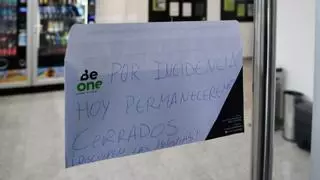 Be
one
POR INCIDENCIA
HOY PERMANECEREMOS
CERRADOS
DISCULPEN LAS MOLESTIAS